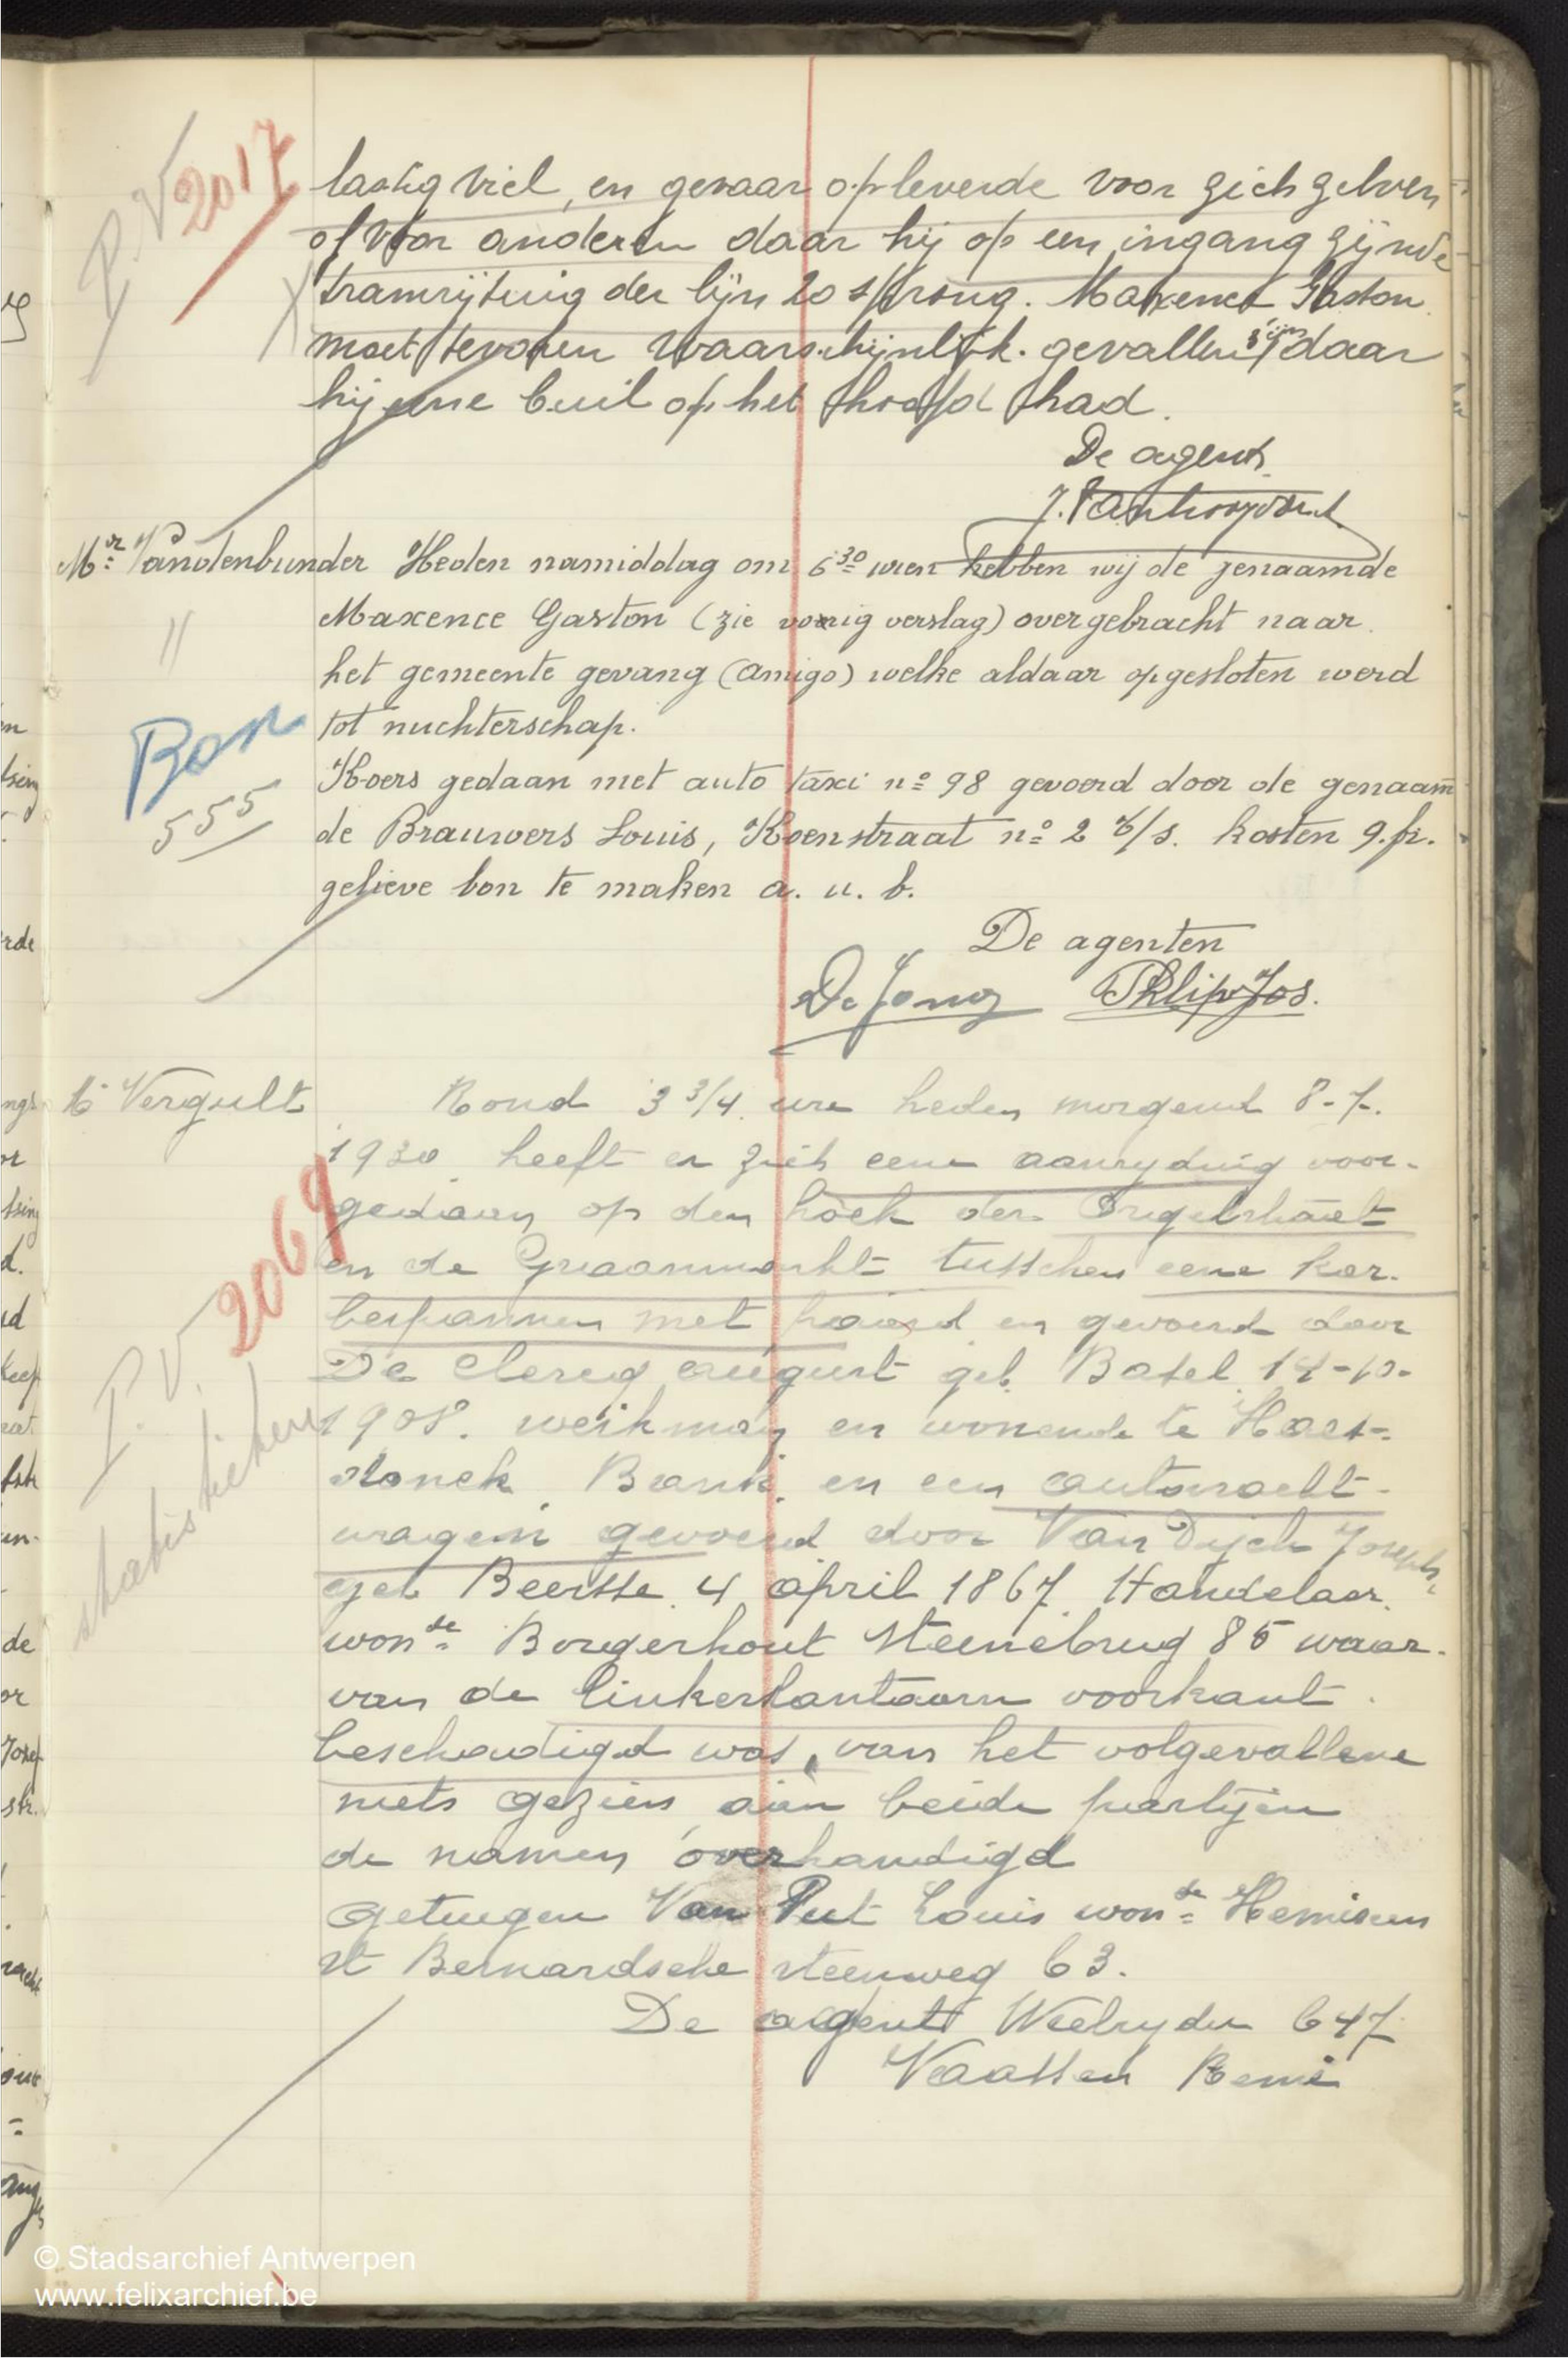 P.V 2017
lastig viel, en gevaar opleverde voor zich zelven
of voor anderen daar hij op een ingang zijnde
tramrijtuig der lijn 20 sprong. Maxence Gaston
moet tevoren waarschijnlijk gevallen zijn daar
hij eene buil op het hoofd had.
De agent
Mr Vandenbunder Heden namiddag om 6 30 uren hebben wij de genaamde
Maxence Gaston (zie vorig verslag) overgebracht naar
het gemeente gevang (Amigo) welke aldaar opgesloten werd
tot nuchterschap.
Bon
555
Koers gedaan met auto taxi no 98 gevoerd door de genaam
de Brauwers Louis, Koenstraat no 2 K/s. kosten 9.fr.
gelieve bon te maken a. u. b.
De agenten
De Jong Philip Jos.
Vergult Rond 3 3/4 ure heden morgend 8-7-
1930 heeft er zich eene aanrijding voor-
gedaan op den hoek der Orgelstraat
P.V. 2069
en de Graanmarkt tusschen eene kar
bespannen met paard en gevoerd door
De Clercq August geb. Basel 14-10-
1908. werkman en wonende te Haes-
donck. Bank. en een autovracht-
statistieken
wagen gevoerd door Van Dyck Joseph
geb Beersse 4 april 1867 Handelaar.
wonde Borgerhout Steenebrug 85 waar-
van de linkerlantaarn voorkant
beschadigd was, van het volgevallene
niets gezien aan beide partijen
de namen overhandigd
getuigen Van Put Louis wonde Hemixem
St Bernardsche steenweg 63.
De agent Weelryder 647
Vaassen Remi
© Stadsarchief Antwerpen
www.felixarchief.be